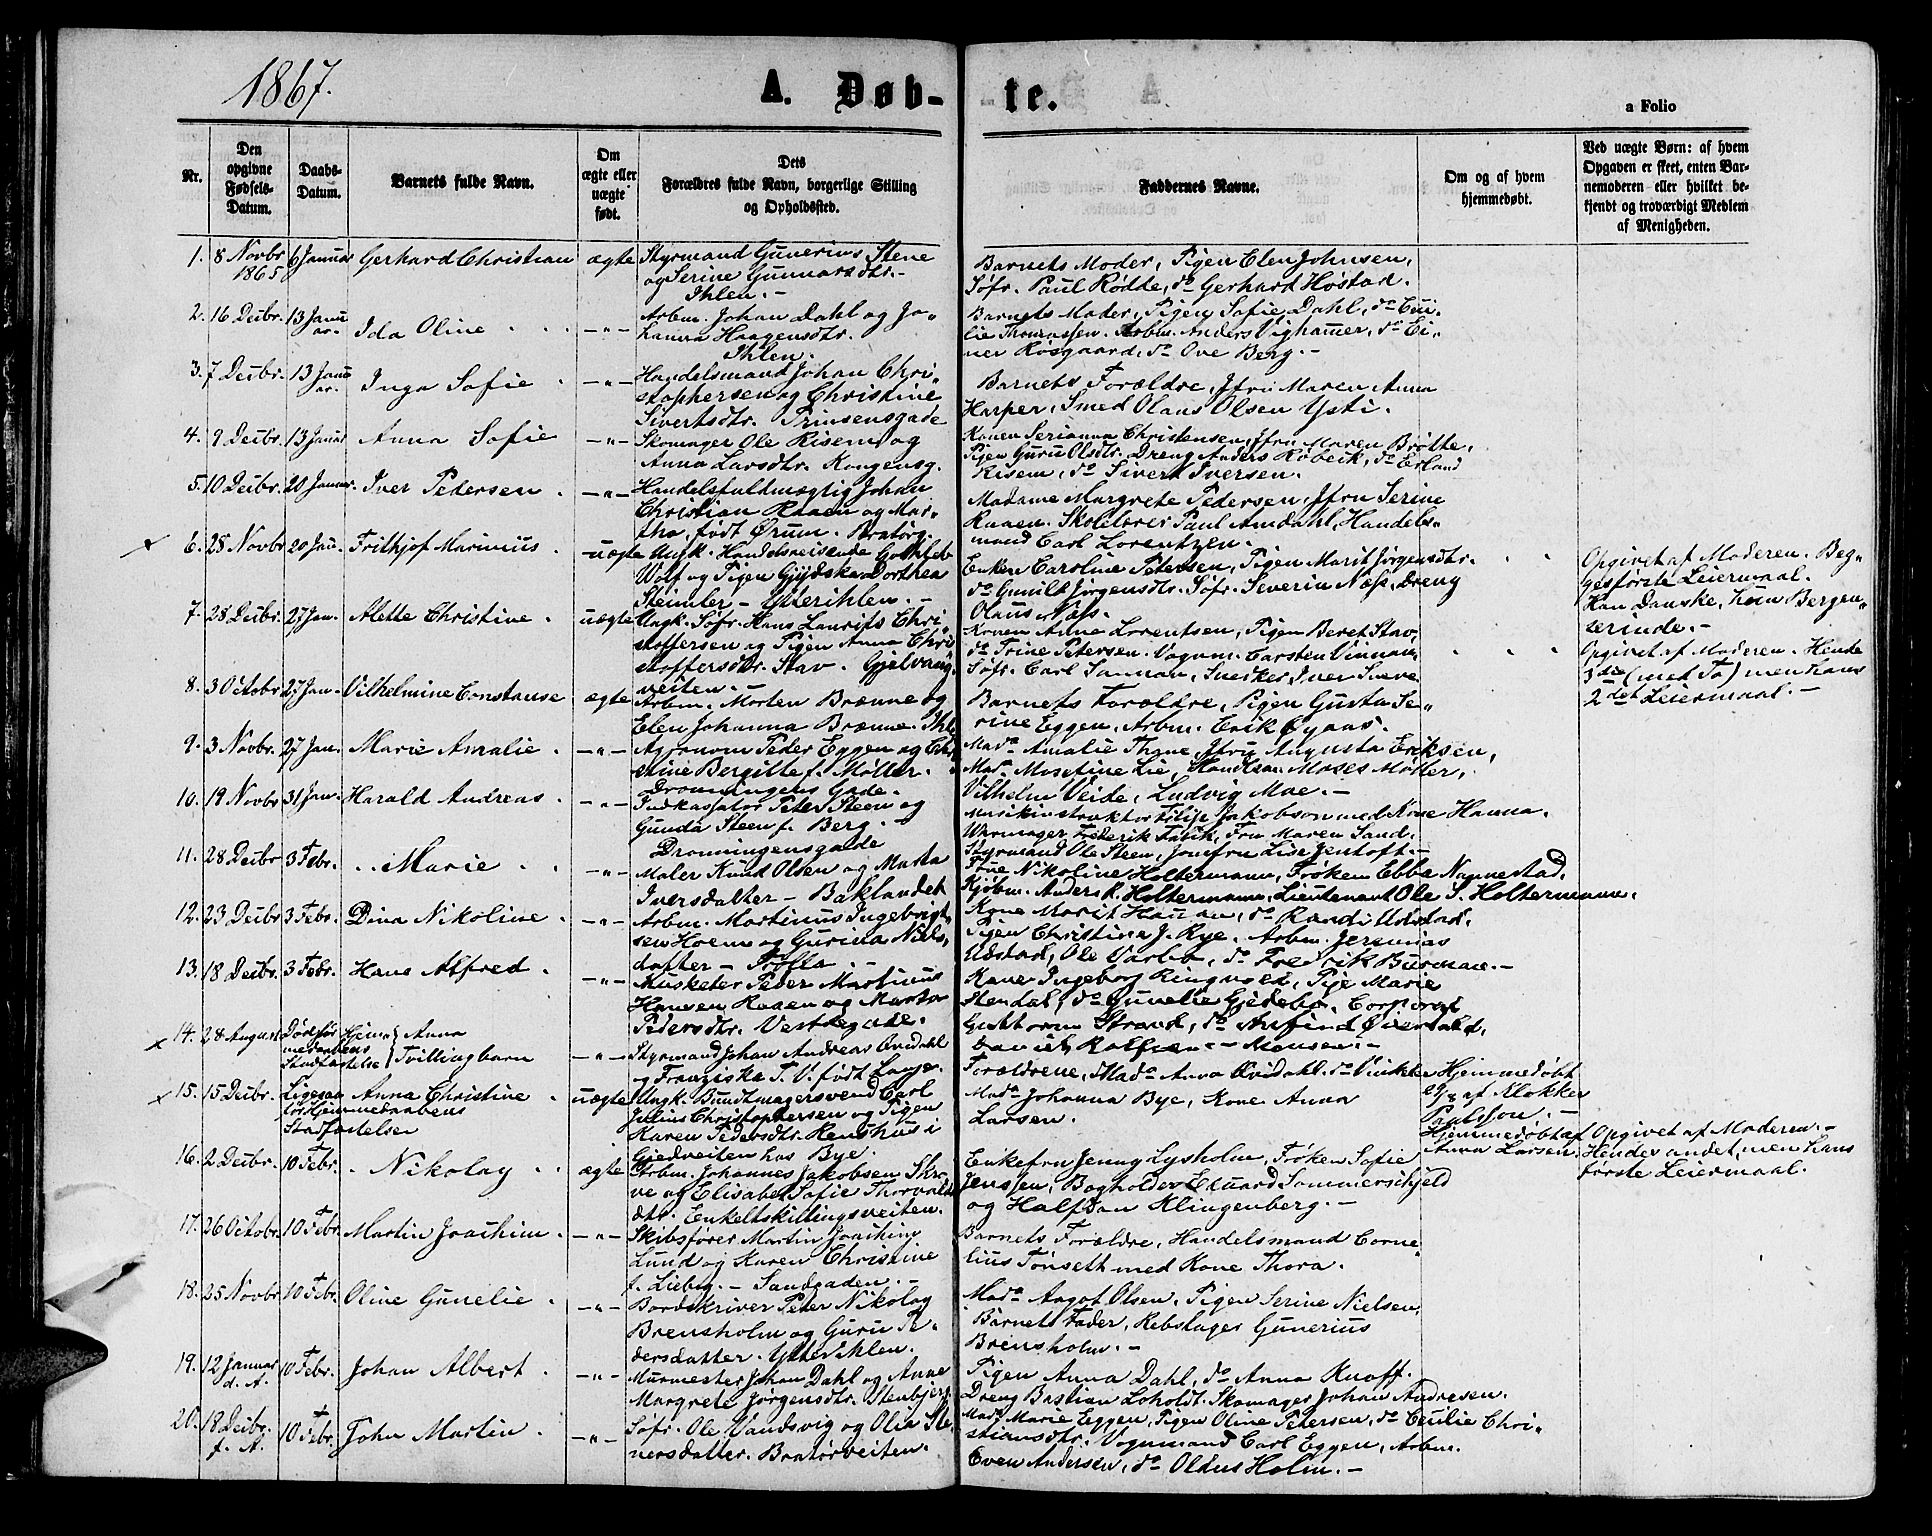 1867.
A. Døb-
te.
a Folio
Nr.
Den opgivne Fødsels-Datum.
Daabs-Datum.
Barnets fulde Navn.
Om ægte eller uægte født.
Dets Forældres fulde Navn, borgerlige Stilling og Opholdssted.
Faddernes Navne.
Om og af hvem hjemmedøbt.
Ved uægte Børn: af hvem Opgaven er skeet, enten Barnemoderen eller hvilket bekjendt og troværdigt Medlem af Menigheden.
1. 8 Novbr 1865 6 Januar Gerhard Christian ægte
Styrmand Gunerius Stene
og Serine Gunnarsdtr.
Ihlen. -
Barnets Moder, Pigen Elen Johnsen,
Søfr. Paul Rødde, do Gerhard Høstad.
2. 16 Decbr. 13 Januar. Ida Oline -"-
Arbm. Johan Dahl og Jo-
hanna Haagensdtr.
Ihlen.
Barnets Moder, Pigen Sofie Dahl, do
lie Thomassen. Arbm. Anders Vighamer, do Ei-
ner Rosgaard, do Ove Berg. -
3. 7 Decbr. 13 Januar. Inga Sofie -"-
Handelsmand Johan Chri-
stophersen og Christine
Sivertsdtr. Prinsensgade
Barnets Forældre, Jfru Maren Anna
Harper, Smed Olaus Olsen Ysti.
4. 9 Decbr. 13 Januar Anna Sofie -"-
Skomager Ole Risem og
Anna Larsdtr. Kongensg.
Konen Serianna Christensen, Jfru Maren Brøtte,
Pigen Guru Olsdtr. Dreng Anders Røbeik, do Erland
Risem, do Sivert Iversen.
5. 10 Decbr. 20 Januar. Iver Pedersen -"-
Handelsfuldmægtig Johan
Christian Raaen og Mar-
tha, født Ørum. Bratørg.
Madame Margrete Pedersen, Jfru Serine
Raaen. Skolelærer Paul Amdahl, Handels-
mand Carl Lorentzen.
6. 28 Novbr 20 Jan. Frithjof Marinius uægte
Ungk. Handelsreisende Gotthleb
Wolf og Pigen Gjydska Dorthea
Steimler - Ytterihlen. -
Enken Caroline Petersen, Pigen Marit Jørgensdtr.
do Gunild Jørgensdtr. Søfr. Severin Næss, Dreng
Olaus Næss.
Opgivet af Moderen. Beg-
ges første Leiermaal.
Han Danske, hun Bergen-
serinde. -
7. 28 Decbr. 27 Jan. Alette Christine uægte
Ungk. Søfr. Hans Laurits Chri-
stoffersen og Pigen Anna Chri-
stoffersdtr. Stav. Gjelvang-
veiten. -
Konen Anne Lorentsen, Pigen Beret Stav,
do Trine Petersen. Vognm. Carsten Vinnan,
Søfr. Carl Sanman, Snerker Iver
Opgivet af Moderen. Hendes
3die (med To) men hans
2det Leiermaal. -
8. 3 Octobr 27 Jan. Vilhelmine Constanse ægte
Arbm. Morten Brænne og
Elen Johanna Brænne. Ihl.
Barnets Forældre, Pigen Gusta Se-
rine Eggen, Arbm. Erik Øyaas.
9. 3 Novbr. 27 Jan. Marie Amalie -"-
Agronom Peder Eggen og Chri-
stine Bergitte f. Møller.
Dronningens Gade.
Mada Amalie Thane, Jfru Augusta Eriksen,
Mad. Mosefine Lie, Handlsm. Moses Møller,
Vilhelm Veide, Ludvig Moe. -
10. 19 Novbr 31 Jan. Harald Andreas -"-
Indkassator Peter Steen og
Gunda Steen f. Berg. -
Dronningensgade
Musikinstruktør Filip Jakobson med Kone Hanna.
Uhrmager Frederik Fabik, Fru Maren Sand.
Styrmand Ole Steen, Jomfru Lise Jentoft. -
11. 28 Decbr 3 Febr. Marie -"-
Maler Knud Olsen og Marta
Iversdatter - Baklandet
Frue Nikoline Holtermann, Frøken Ebba Nannestad,
Kjøbm. Anders R. Holtermann, Lieutenant Ole S. Holtermann.
12. 23 Decbr 3 Febr. Dina Nikoline -"-
Arbm. Martinus Ingebrigt-
sen Hoem og Gurina Niels-
datter - Trolla. -
Kone Marit Hanan, do Randi Udstad.
Pigen Christina J. Rye. Arbm. Jeremias
Udstad, Ole Varbo, do Fredrik Burman. -
13. 18 Decbr. 3 Febr. Hans Alfred -"-
Musketer Peder Martinus
Hansen Raaen og Marta
Pedersdtr. Vestregade.
Kone Ingeborg Ringused, Pige Marie
Stendal, do Gunelie Gjedebo, Corporal
Gutthorm Strand, do Arnfind
14. 28 August Død før Hjemmedaabens Stadfæstelse Anna Tvillingbarn -"-
Styrmand Johan Andreas Qvidahl
og Franziska T. V. født Lange.
Forældrene, Mada Anna Qvidahl. do Vinkke
Hjemmedøbt
af Klokker
Paulsson. -
15. 15 Decbr. Ligesaa før Hjemmedaabens Stadfæstelse Anne Christine uægte
Ungk. Bundtmagersvend Carl
Julius Christophersen og Pigen
Karen Pedersdtr. Henshus i
Gjedveiten hos Bye.
Mada Johanna Bye, Kone Anna
Larsen.
Hjemmedøbt af
Anna Larsen.
Opgivet af Moderen. -
Hendes andet, men hans
første Leiermaal.
16. 2 Decbr. 10 Febr. Nikolay ægte
Arbm. Johannes Jakobsen Skre-
ve og Elisabet Sofie Thorvalds-
dtr. Enkeltskillingsveiten.
Enkefru Jenny Lysholm, Frøken Sofie
Jenssen, Bogholder Eduard Sommerschjeld
og Halfdan Klingenberg. -
17. 26 Octobr. 10 Febr. Martin Joachim -"-
Skibsfører Martin Joachim
Lund og Karen Christine
f. Liebig. - Sandgaden. -
Barnets Forældre, Handelsmand Corne-
lius Tønsett med Kone Thora.
18. 25 Novbr 10 Febr. Oline Gunelie -"-
Bordskriver Peter Nikolay
Brensholm og Guru Pe-
dersdatter. Ytterihlen.
Mada Angot Olsen, Pigen Serine Nielsen,
Barnets Fader, Rebslager Gunerius
Brensholm. -
19. 12 Januar d. A. 10 Febr. Johan Albert -"-
Murmester Johan Dahl og Anne
Margrete Jørgensdtr. Stenbjerg
Pigen Anna Dahl, do Anna Knoff.
Dreng Bastian Loholdt. Skomager Johan Andresen.
20. 18 Decbr. f. A. 10 Febr. John Martin -"-
Søfr. Ole Vandsvig og Olia Ste-
nersdatter. Bratørveiten.
Mada Marie Eggen, Pigen Oline Petersen, do Cecilie Chri-
stiansdtr. Vognmand Carl Eggen, Arbm.
Even Andersen, do Oldus Holm. -